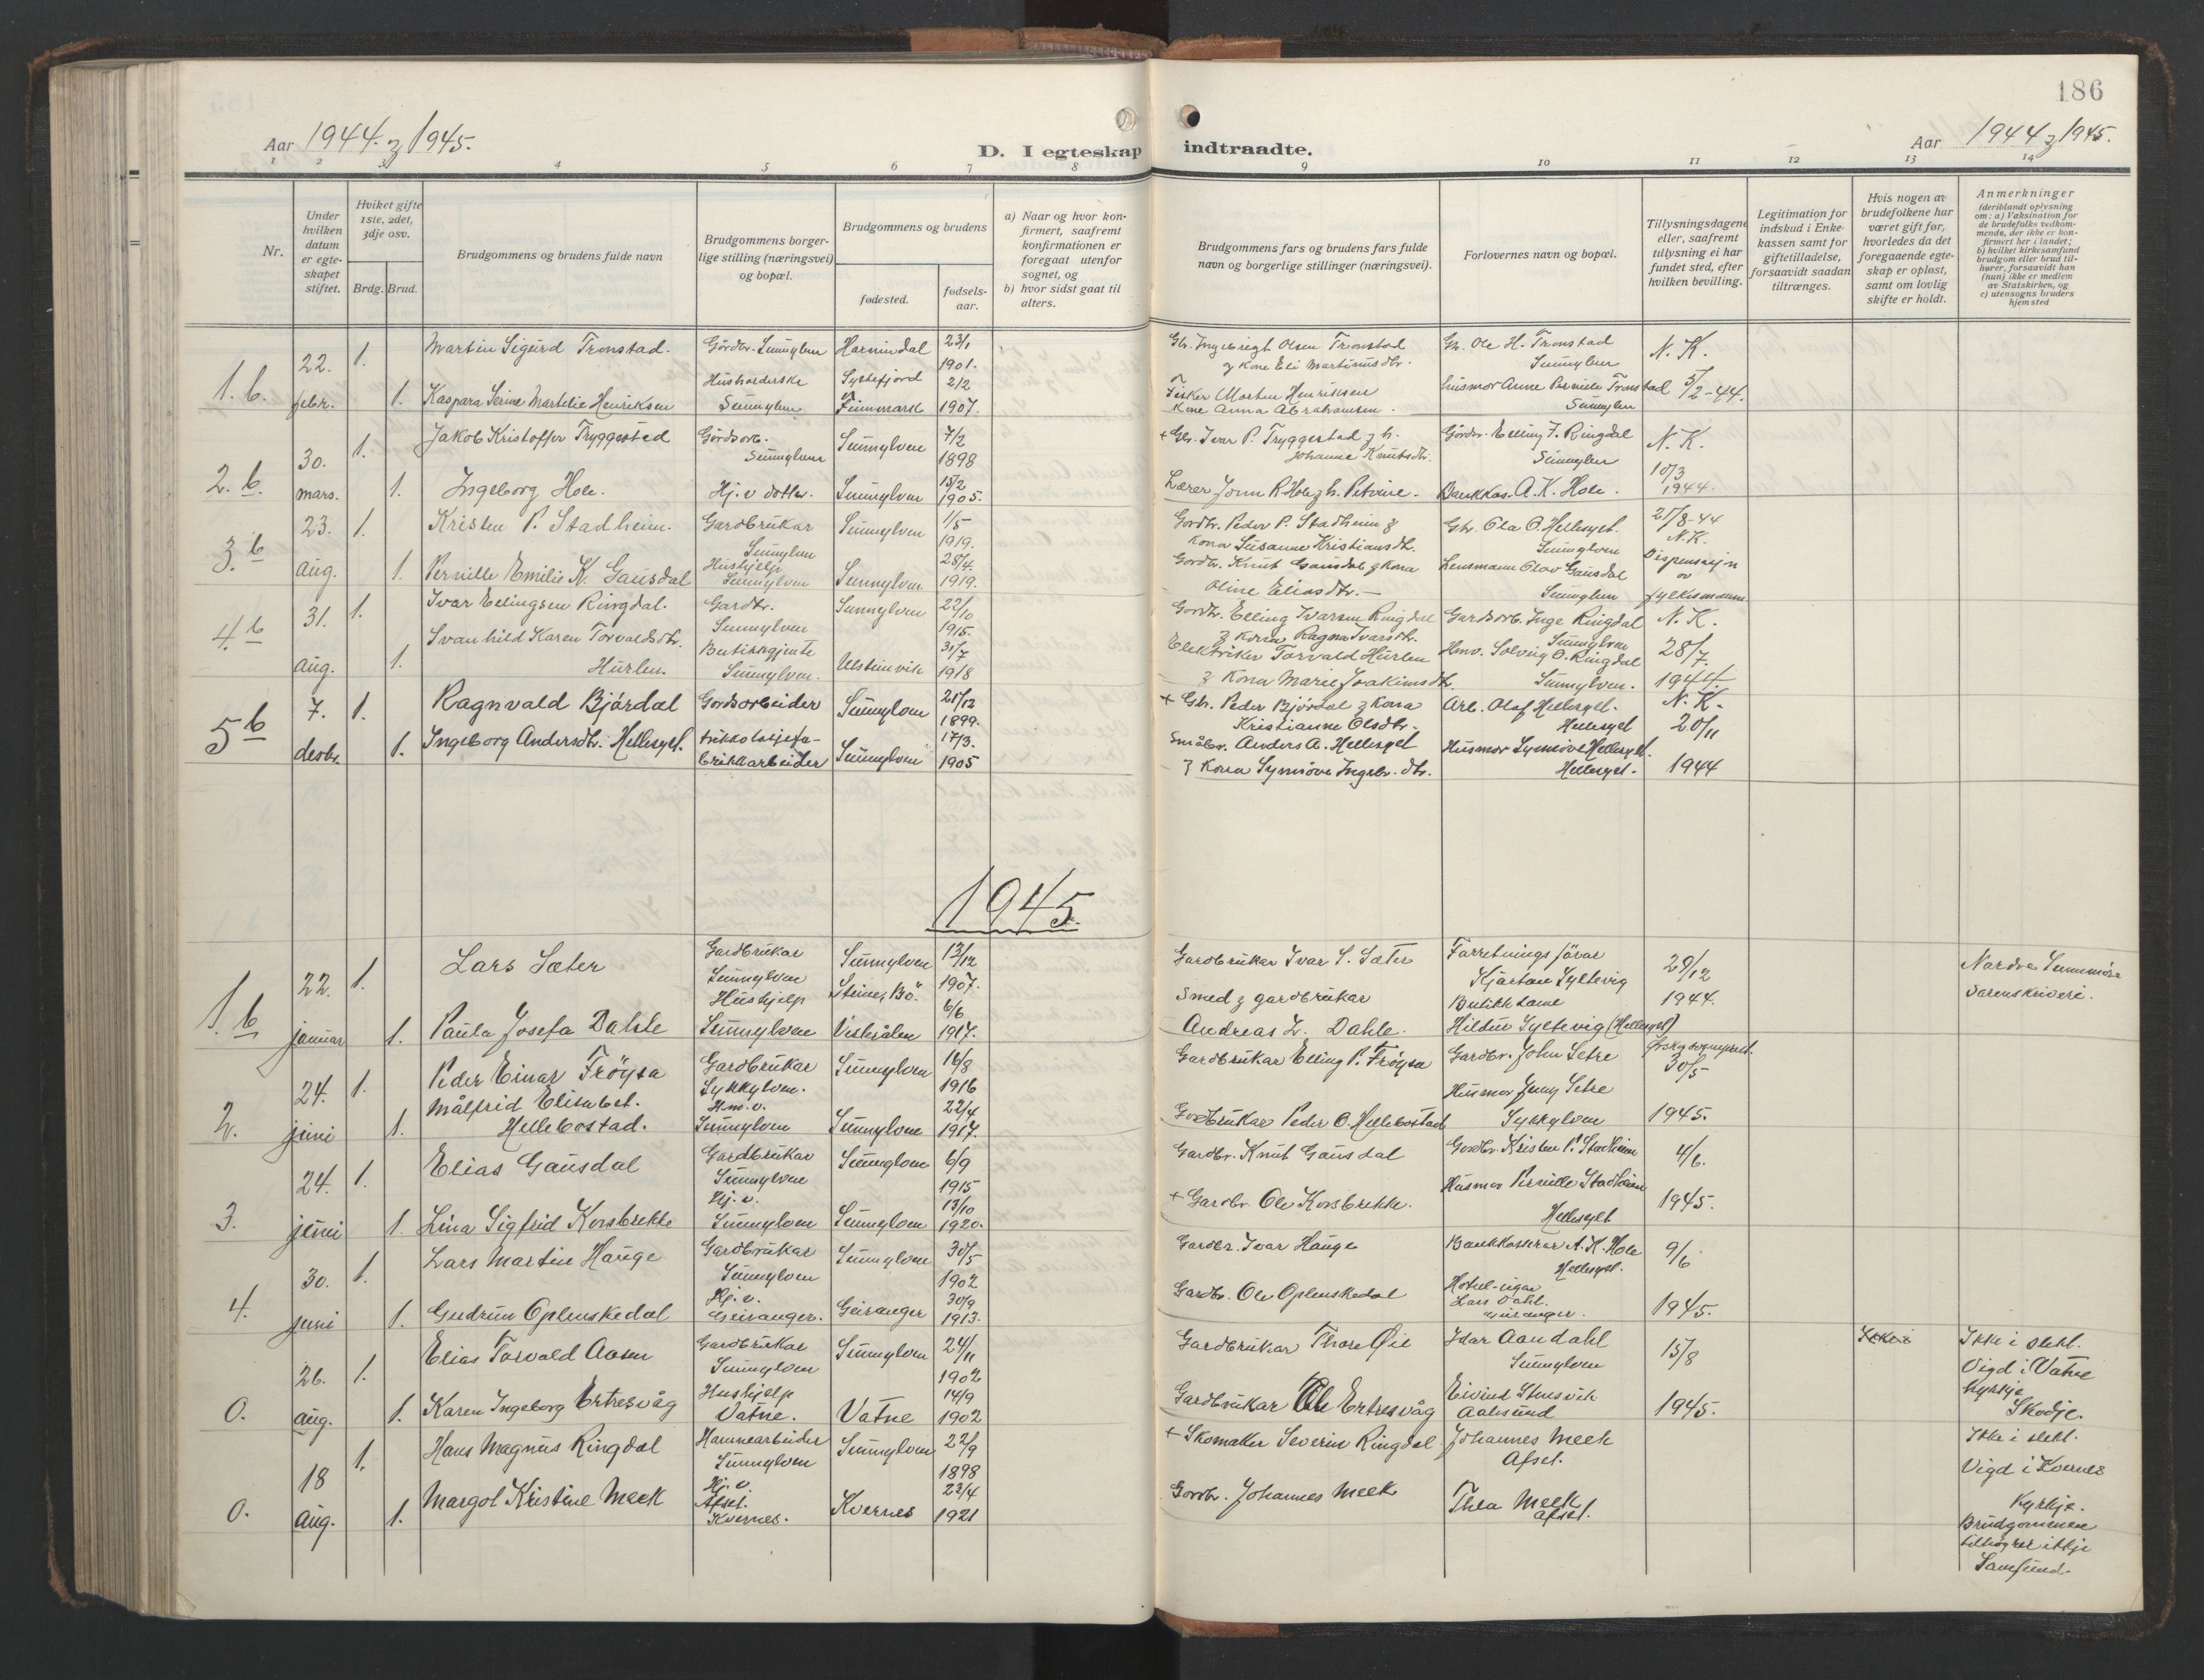 186
Aar 1944 z 1945.
D. I egteskap indtraadte.
Aar 1944 z 1945.
1 2 3 4 5 6 7 8 9 10 11 12 13 14
Nr.
Under hvilken datum er egte-skapet stiftet.
Hviket gifte 1ste, 2det, 3dje osv.
Brdg. Brud.
Brudgommens og brudens fulde navn
Brudgommens borger-lige stilling (næringsvei) og bopæl.
Brudgommens og brudens
fødested.
fødsels-aar.
a) Naar og hvor kon-firmert, saafremt konfirmationen er foregaat utenfor sognet, og
b) hvor sidst gaat til alters.
Brudgommens fars og brudens fars fulde navn og borgerlige stillinger (næringsvei).
Forlovernes navn og bopæl.
Tillysningsdagene eller, saafremt tillysning ei har fundet sted, efter hvilken bevilling.
Legitimation for indskud i Enke-kassen samt for giftetilladelse, forsaavidt saadan tiltrænges.
Hvis nogen av brudefolkene har været gift før, hvorledes da det foregaaende egte-skap er opløst, samt om lovlig skifte er holdt.
Anmerkninger (deriblandt oplysning om: a) Vaksination for de brudefolks vedkom-mende, der ikke er kon-firmert her i landet; b) hvilket kirkesamfund brudgom eller brud til-hører, forsaavidt han (hun) ikke er medlem av Statskirken, og c) utensogns bruders hjemsted
1. b. 22. febr. 1. Martin Sigurd Tronstad. Gårdbr. Sunnylven Hornindal 23/1 1901. Gbr. Ingebrigt Olsen Tronstad z Kone Eli Martinusdtr. Gbr. Ole H. Tronstad Sunnylven N. K.
1. Kaspara Serine Martelie Henriksen Husholderske Sunnylven Syltefjord Finnmark 2/2 1907. Fisker Morten Henriksen Kone Anna Abrahamsen. Husmor Anne Pernille Tronstad Sunnylven 5/2-44.
2. b. 30. mars. 1. Jakob Kristoffer Tryggestad Gårdsarb. Sunnylven Sunnylven 7/2 1898 + Gbr. Ivar P. Tryggestad z h. Johanne Knutsdtr. Gårdbr. Elling I. Ringdal Sunnylven N. K.
1. Ingeborg Hole. Hj. v dotter. Sunnylven 15/2 1905. Lærer Jonn R. Hole z h. Petrine. Bankkas. A. K. Hole. 10/3 1944.
3. b 23. aug. 1. Kristen P. Stadheim. Gardbrukar Sunnylven Sunnylven 1/5 1919. Gardbr. Peder P. Stadheim z Kona Susanne Kristiansdtr. Gbr. Ola O. Hellesylt. Sunnylven 21/8-44 N.K.
1. Pernille Emilie K. Gausdal Hushjelp Sunnylven Sunnylven 28/4. 1919. Gardbr. Knut Gausdal z Kona Oline Eliasdtr. Lensmann Olav Gausdal Sunnylven Dispensasjon av fylkesmann
4. b 31. aug. 1. Ivar Ellingsen Ringdal. Gardbr. Sunnylven Sunnylven 22/10 1915. Gardbr. Elling Ivarsen Ringdal z Kona Ragna Ivarsdtr. Gardsarb. Inge Ringdal Sunnylven N. K.
1. Svanhild Karen Torvaldsdtr. Hurlen. Butikkgjente Sunnylven. Ulsteinvik 31/7 1918 Elektriker Torvald Hurlen z Kona Marie Joakimsdtr. Hmv. Solveig O. Ringdal Sunnylven. 28/7. 1944
5 b 7. desbr. 1. Ragnvald Bjørdal Gardsarbeider Sunnylven 21/12 1899. + Gbr. Peder Bjørdal z Kona Kristianne Olsdtr. Arb. Olaf Hellesylt. Hellesylt N. K. 20/11
1. Ingeborg Andersdtr. Hellesylt. Trikkotasjefa-brikkarbeider Sunnylven 17/3. 1905 Småbr. Anders A. Hellesylt z Kona Synnøve Ingebr. dtr. Husmor Synnøve Hellesylt. Hellesylt. 1944
1945.
1. b 22. januar 1. Lars Sæter Gardbrukar Sunnylven Sunnylven 13/12 1907. Gardbrukar Ivar S. Sæter Forretningsførar Kjartan Syltevig 29/12 Nordre Sunnmøre Sorenskriveri.
1. Paula Josefa Dahle Hushjelp Sunnylven Steines, Bø. Vesterålen 6/6 1917. Smed z gardbrukar Andreas L. Dahle. Butikkdame Hildur Syltevig (Hellesylt) 1944.
2. 24. juni 1. Peder Einar Frøysa Gardbrukar Sykkylven. Sunnylven 16/8 1916 Gardbrukar Elling P. Frøysa Gardbr. John Setre 30/5
1. Målfrid Elisabet. Hellebostad. Hm. v. Sunnylven Sunnylven 22/4 1917. Gardbrukar Peder O. Hellebostad Husmor Jenny Setre Sykkylven 1945.
3. 24. juni 1. Elias Gausdal Gardbrukar Sunnylven Sunnylven 6/9 1915 Gardbr. Knut Gausdal Gardbr. Kristen P. Stadheim 4/6.
1. Lina Sigfrid Korsbrekke Hj. v. Sunnylven Sunnylven 13/10 1920. + Gardbr Ole Korsbrekke. Husmor Pernille Stadheim Hellesylt 1945.
4. 30. juni 1. Lars Martin Hauge Gardbrukar Sunnylven Sunnylven 30/5 1902 Gardbr. Ivar Hauge Bankkasserar A. K. Hole Hellesylt. 9/6
1. Gudrun Oplenskedal Hj. v. Geiranger. Geiranger 30/9 1913. Gardbr. Ole Oplenskedal Hotel-eigar Lars Dahl. Geiranger. 1945.
0. 26. aug. 1. Elias Torvald Aasen Gardbrukar Sunnylven Sunnylven 24/11 1902 Gardbrukar Thore Øie Idar Aandahl Sunnylven 15/8 Ikke i slekt. Vigd i Vatne kyrkje Skodje.
1. Karen Ingeborg Ertresvåg Hushjelp Vatne. Vatne 14/9 1902 Gardbrukar Ole Ertresvåg Eivind Stensvik Aalesund 1945.
0. 18 aug. 1. Hans Magnus Ringdal Hamnearbeider Sunnylven Sunnylven 22/9 1898 + Skomaker Severin Ringdal Johannes Meek Afset. Ikke i slekt. Vigd i Kvernes Kyrkje. Brudgommen tilhøyrer ikkje Samfund.
1. Margot Kristine Meek Hj. v. Afset. Kvernes. Kvernes 23/4 1921 Gardbr. Johannes Meek Thea Meek Afset.